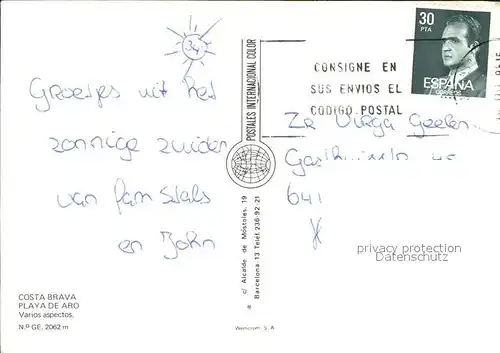 34
30
PTA
ESPAÑA
CONSIGNE EN
SUS ENVIOS EL
CODIGO POSTAL
POSTALES INTERNACIONAL COLOR
Groetjes uit het
zonnige zuiden
van fam Stals
en John
Zr Virga Geelen
641
privacy protection
Datenschutz
c/ Alcalde de Móstoles, 19
Barcelona-13 Teléf. 236-92-21
COSTA BRAVA
PLAYA DE ARO
Varios aspectos.
N.º GE. 2062 m
S. A